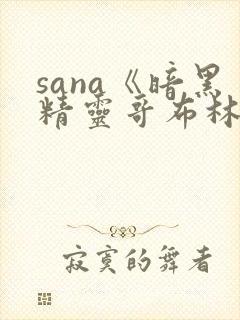 sana《暗黑
精靈哥布林
寂寞的舞者